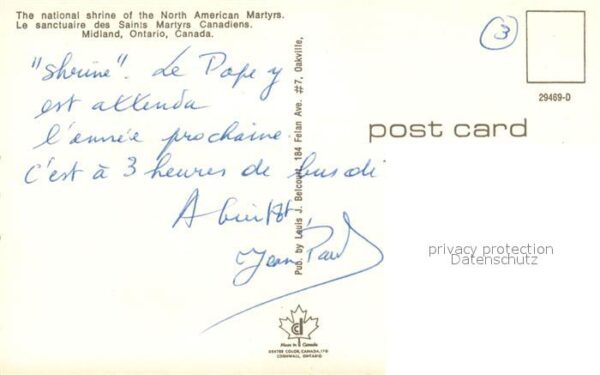 The national shrine of the North American Martyrs.
Le sanctuaire des Saints Martyrs Canadiens.
Midland, Ontario, Canada.
3
"shrine". Le Pape y
est attendu
l'année prochaine.
C'est à 3 heures de bus di
A bientôt,
Jean Paul
Pub. by Louis J. Belcourt, 184 Felan Ave. #7, Oakville,
29469-D
post card
privacy protection
Datenschutz
Made in Canada
DEXTER COLOR, CANADA, LTD
CORNWALL, ONTARIO